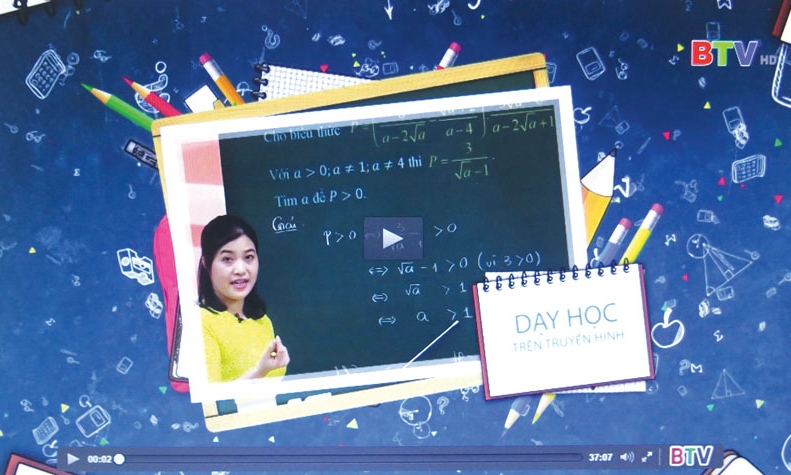 BTV HD
Cho biểu thức P =
a-2√a a-4 a-2√a+1
Với a > 0; a ≠ 1; a ≠ 4 thì P = 3/(√a-1).
Tìm a để P > 0.
Giải
P > 0 > 0
⇔ √a - 1 > 0 (vì 3 > 0)
⇔ √a > 1
⇔ a > 1
DẠY HỌC
TRÊN TRUYỀN HÌNH
00:02 37:07 BTV